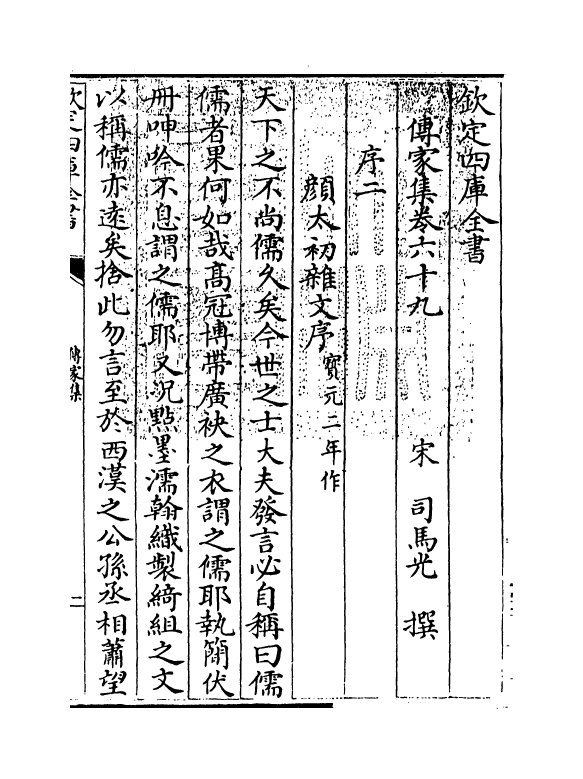 欽定四庫全書
傳家集卷六十九
宋 司馬光 撰
序二
顔太初雜文序寳元二年作
天下之不尚儒久矣今世之士大夫發言必自稱曰儒
儒者果何如哉髙冠博帶廣袂之衣謂之儒耶執簡伏
冊呻吟不息謂之儒耶又況點墨濡翰織製綺組之文
以稱儒亦逺矣捨此勿言至於西漢之公孫丞相蕭望
欽定四庫全書
傳家集